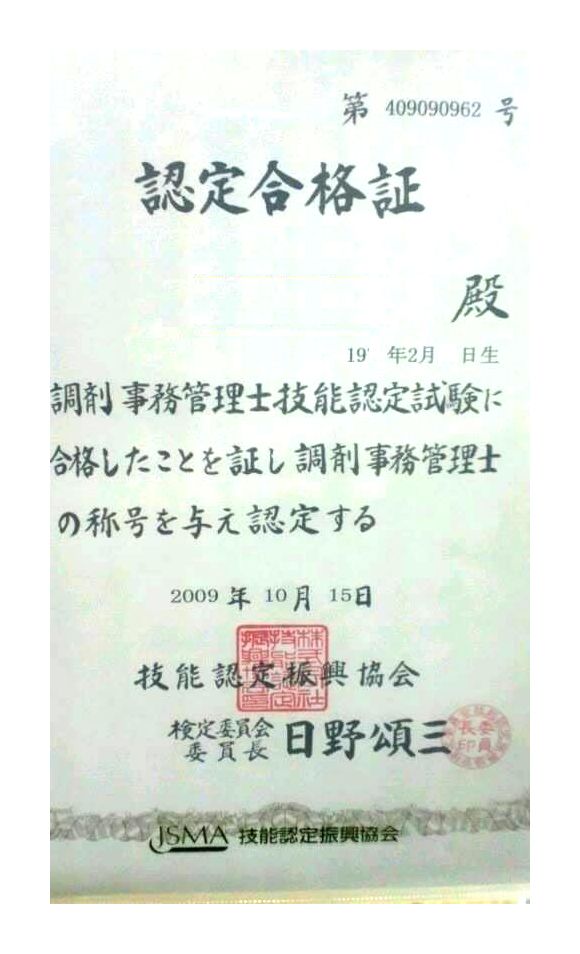 第 409090962 号
認定合格証
殿
19 年2月 日生
調剤事務管理士技能認定試験に
合格したことを証し調剤事務管理士
の称号を与え認定する
2009 年 10 月 15日
技能認定振興協会
検定委員会
委員長 日野頌三
JSMA 技能認定振興協会